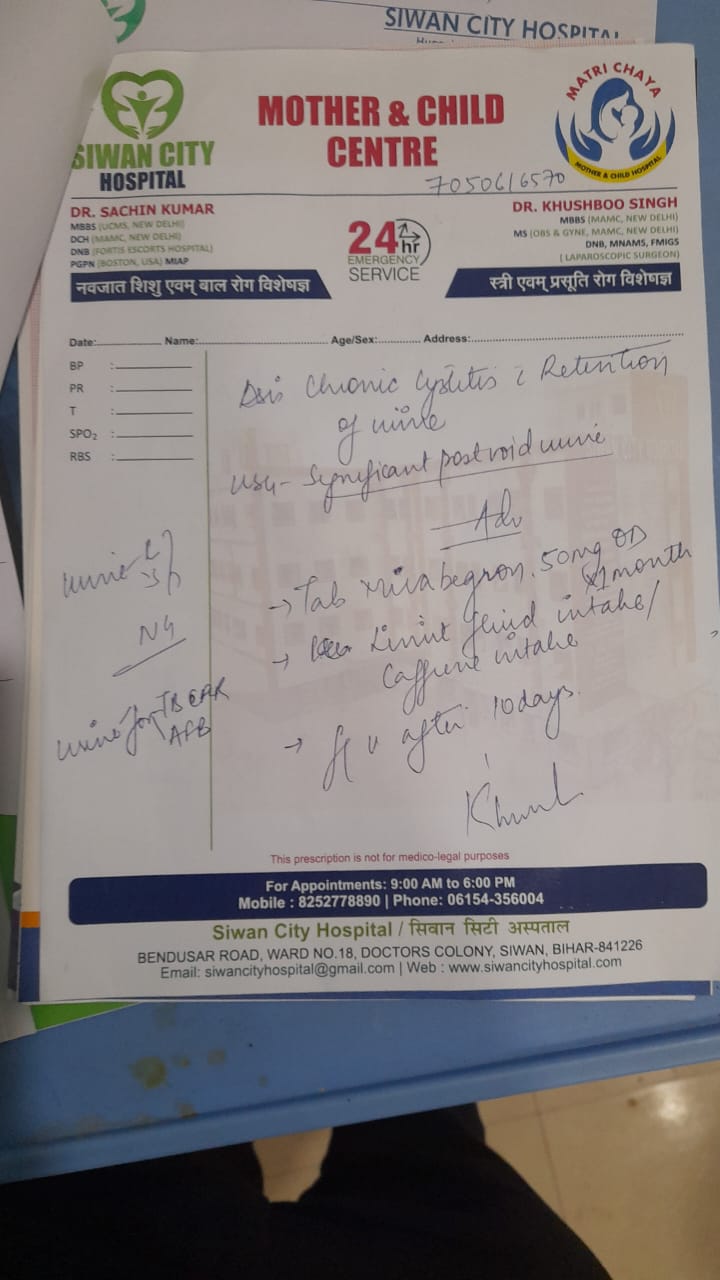 SIWAN CITY HOSPITAL
SIWAN CITY
HOSPITAL
MOTHER & CHILD
CENTRE
MATRI CHAYA
MOTHER & CHILD HOSPITAL
7050616570
DR. SACHIN KUMAR
MBBS (UCMS, NEW DELHI)
DCH (MAMC, NEW DELHI)
DNB (FORTIS ESCORTS HOSPITAL)
PGPN (BOSTON, USA) MIAP
नवजात शिशु एवम् बाल रोग विशेषज्ञ
24 hr
EMERGENCY
SERVICE
DR. KHUSHBOO SINGH
MBBS (MAMC, NEW DELHI)
MS (OBS & GYNE, MAMC, NEW DELHI)
DNB, MNAMS, FMIGS
( LAPAROSCOPIC SURGEON)
स्त्री एवम् प्रसूति रोग विशेषज्ञ
Date: Name: Age/Sex: Address:
BP :
PR :
T :
SPO2 :
RBS :
Chronic Cystitis c̄ Retention
of urine
USG - Significant post void urine
Adv
→ Tab Mirabegron 50mg OD x 1 month
→ Limit fluid intake/
Caffeine intake
→ f/u after 10 days.
urine
NG
urine for TB
AFB
This prescription is not for medico-legal purposes
For Appointments: 9:00 AM to 6:00 PM
Mobile : 8252778890 | Phone: 06154-356004
Siwan City Hospital / सिवान सिटी अस्पताल
BENDUSAR ROAD, WARD NO.18, DOCTORS COLONY, SIWAN, BIHAR-841226
Email: siwancityhospital@gmail.com | Web : www.siwancityhospital.com